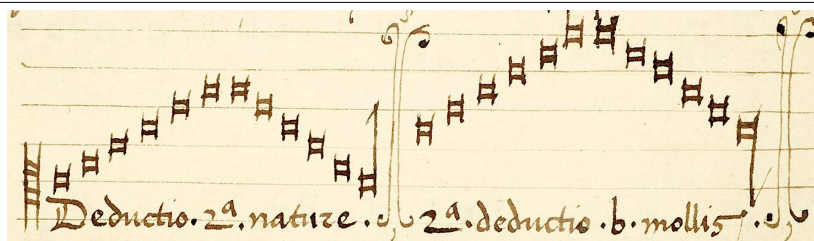 Deductio. 2ª. nature. 2ª. deductio. b. mollis.